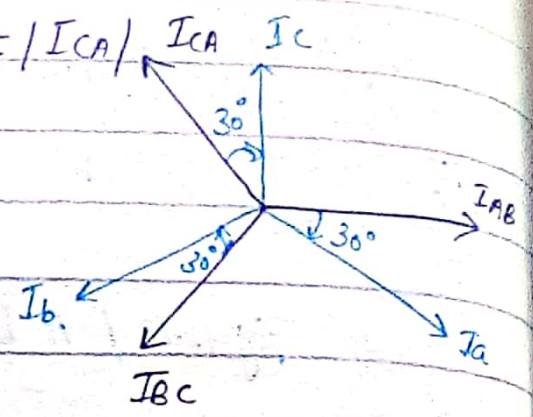 = |ICA| ICA IC
30°
IAB
30°
30°
Ib.
Ia
IBC